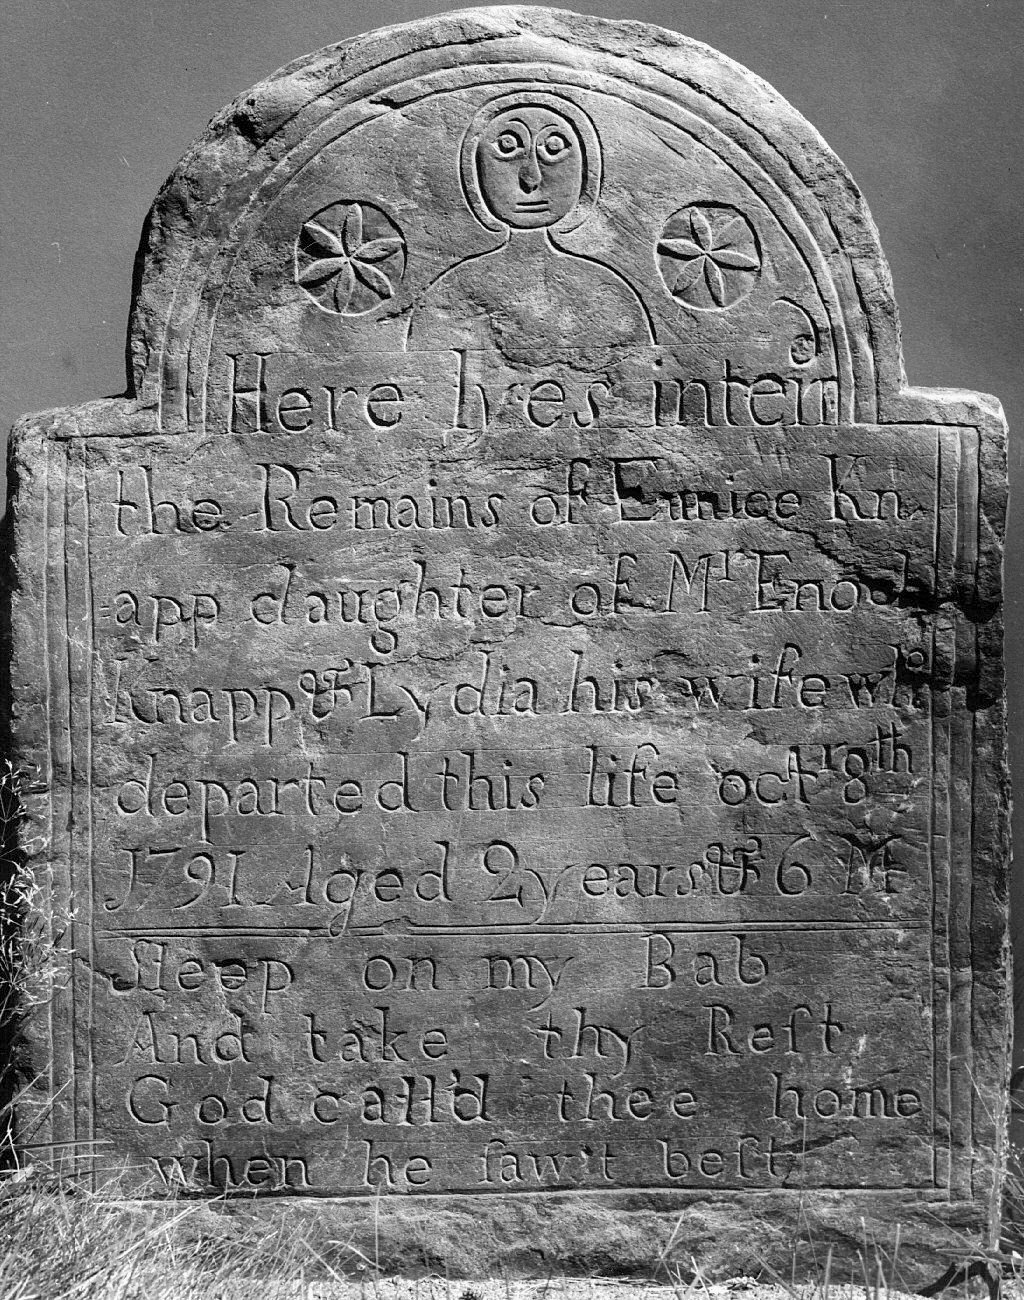 Here lyes interd
the Remains of Eunice Kn
app daughter of Mr Enoch
Knapp & Lydia his wife who
departed this life octr 8th
1791 Aged 2 years & 6 M
Sleep on my Bab
And take thy Reſt
God call'd thee home
when he ſaw't beſt